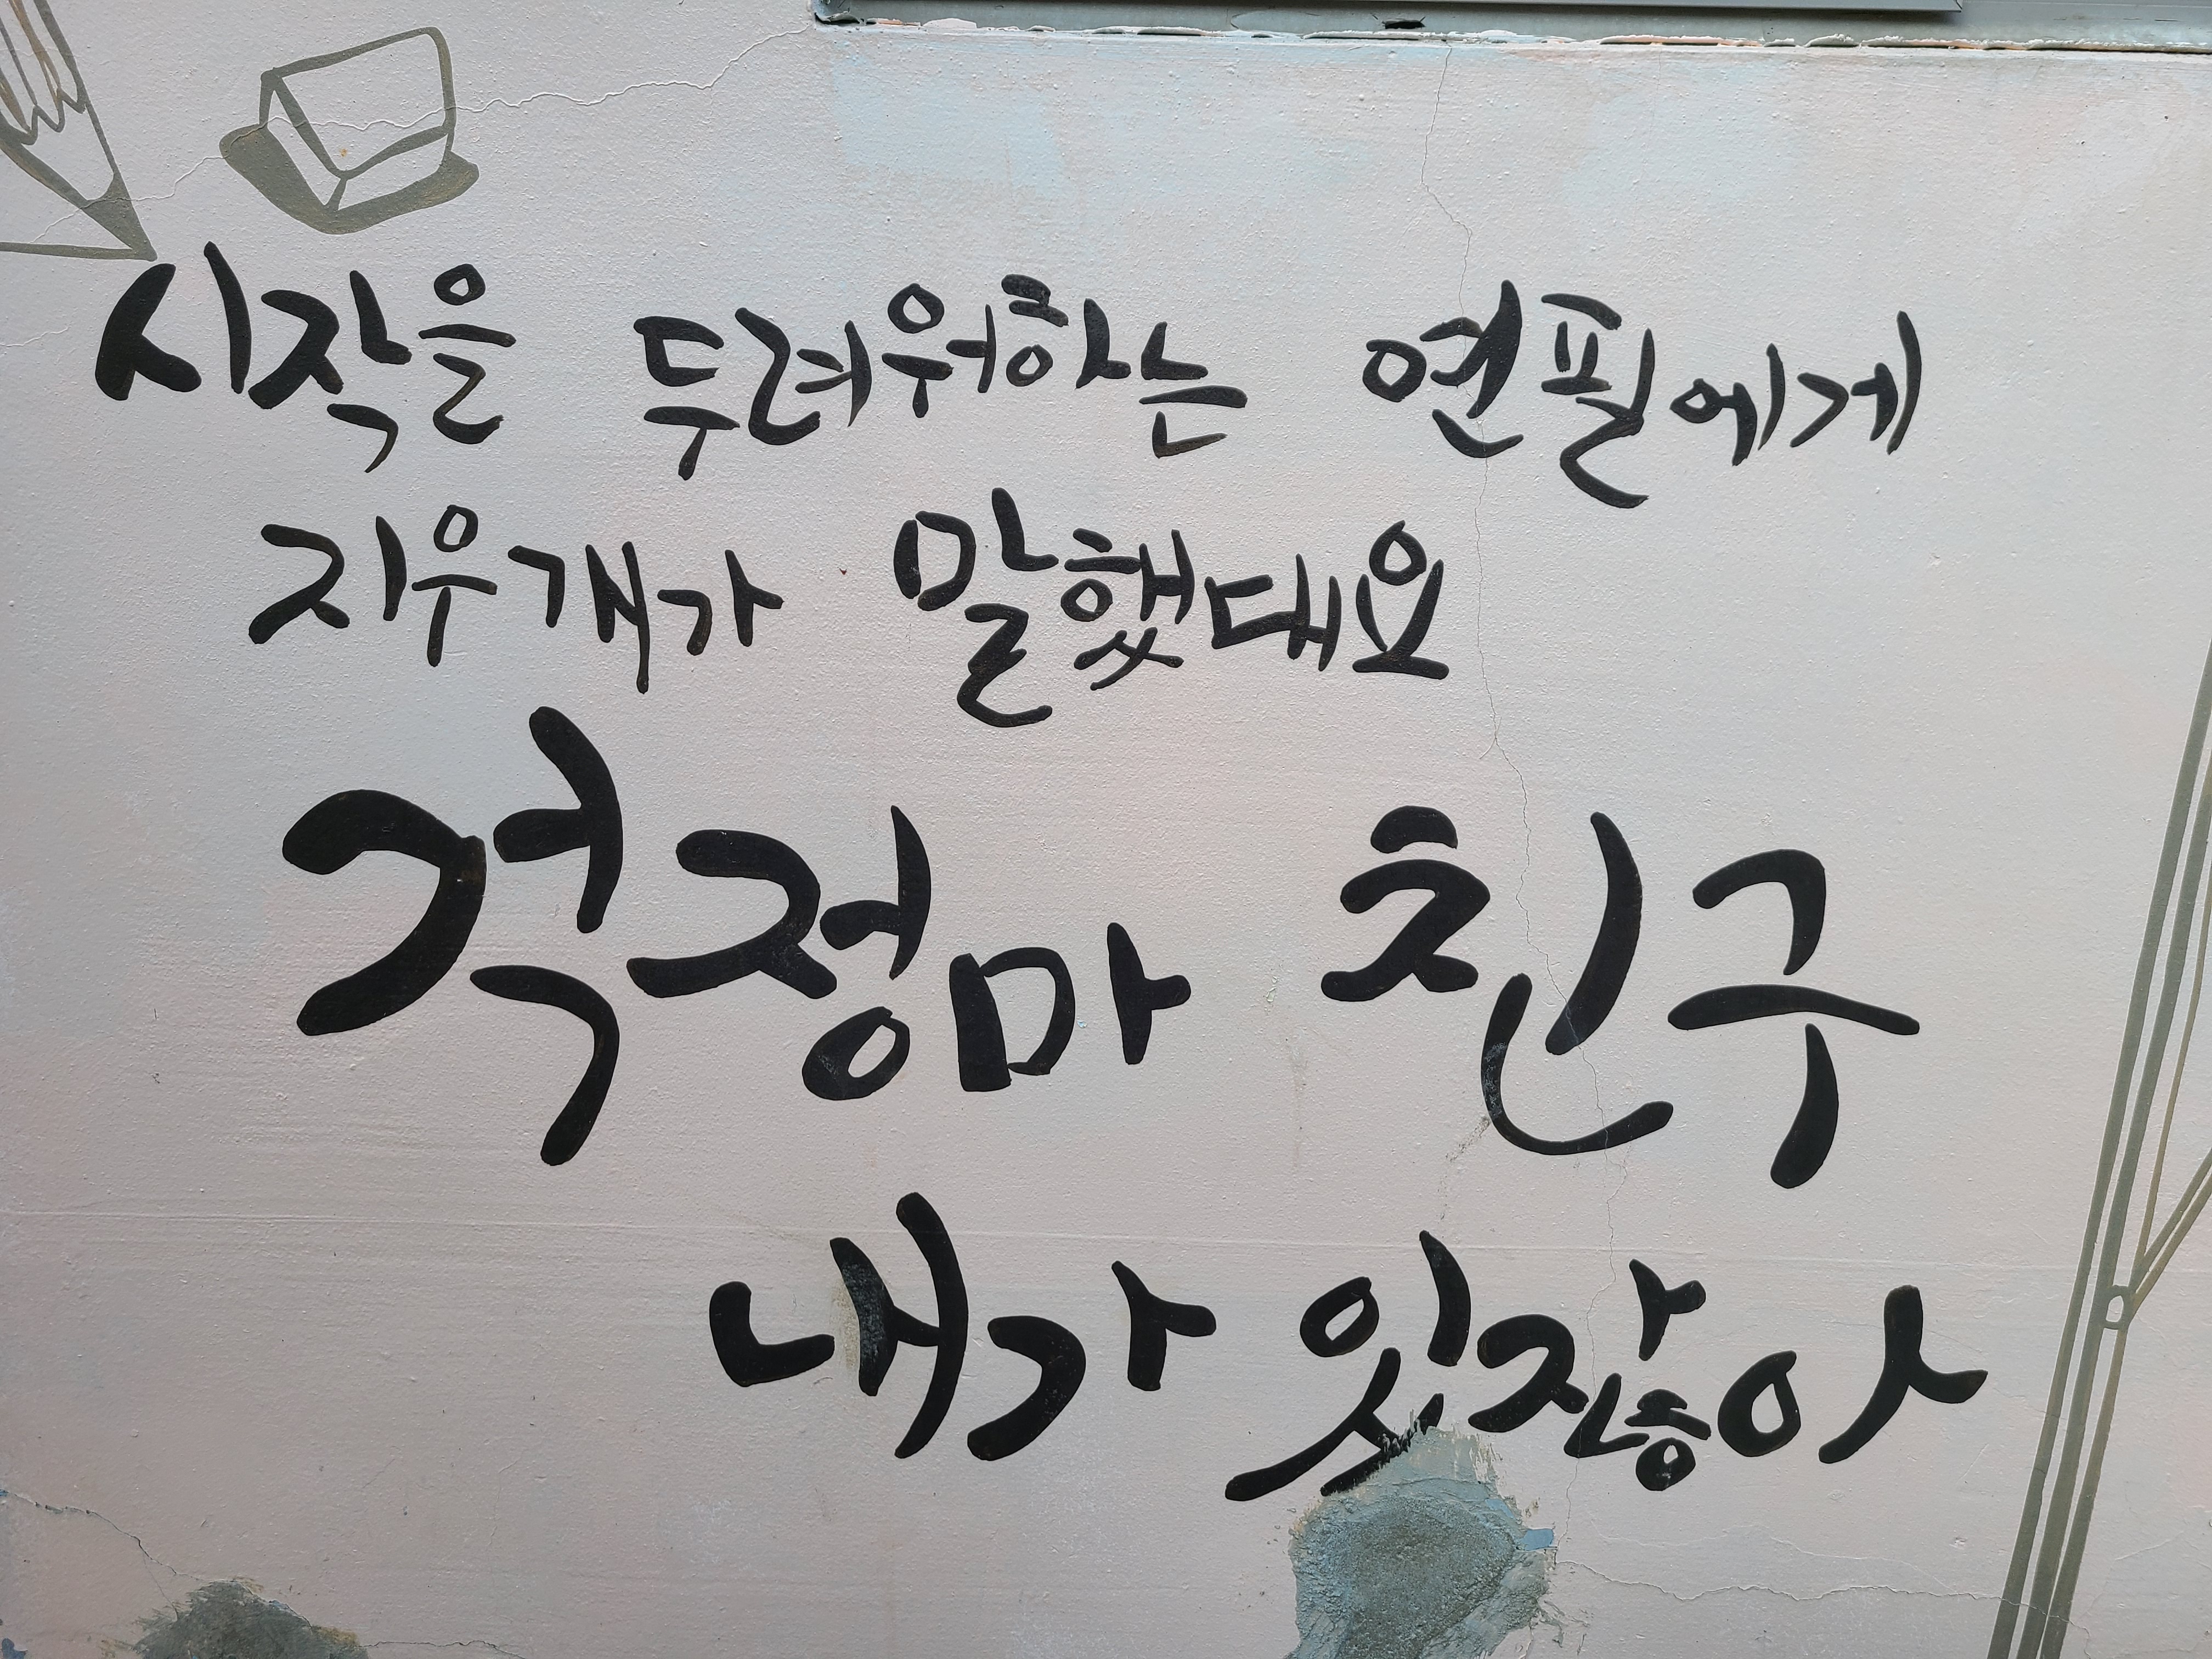 시작을 두려워하는 연필에게
지우개가 말했대요
걱정마 친구
내가 있잖아